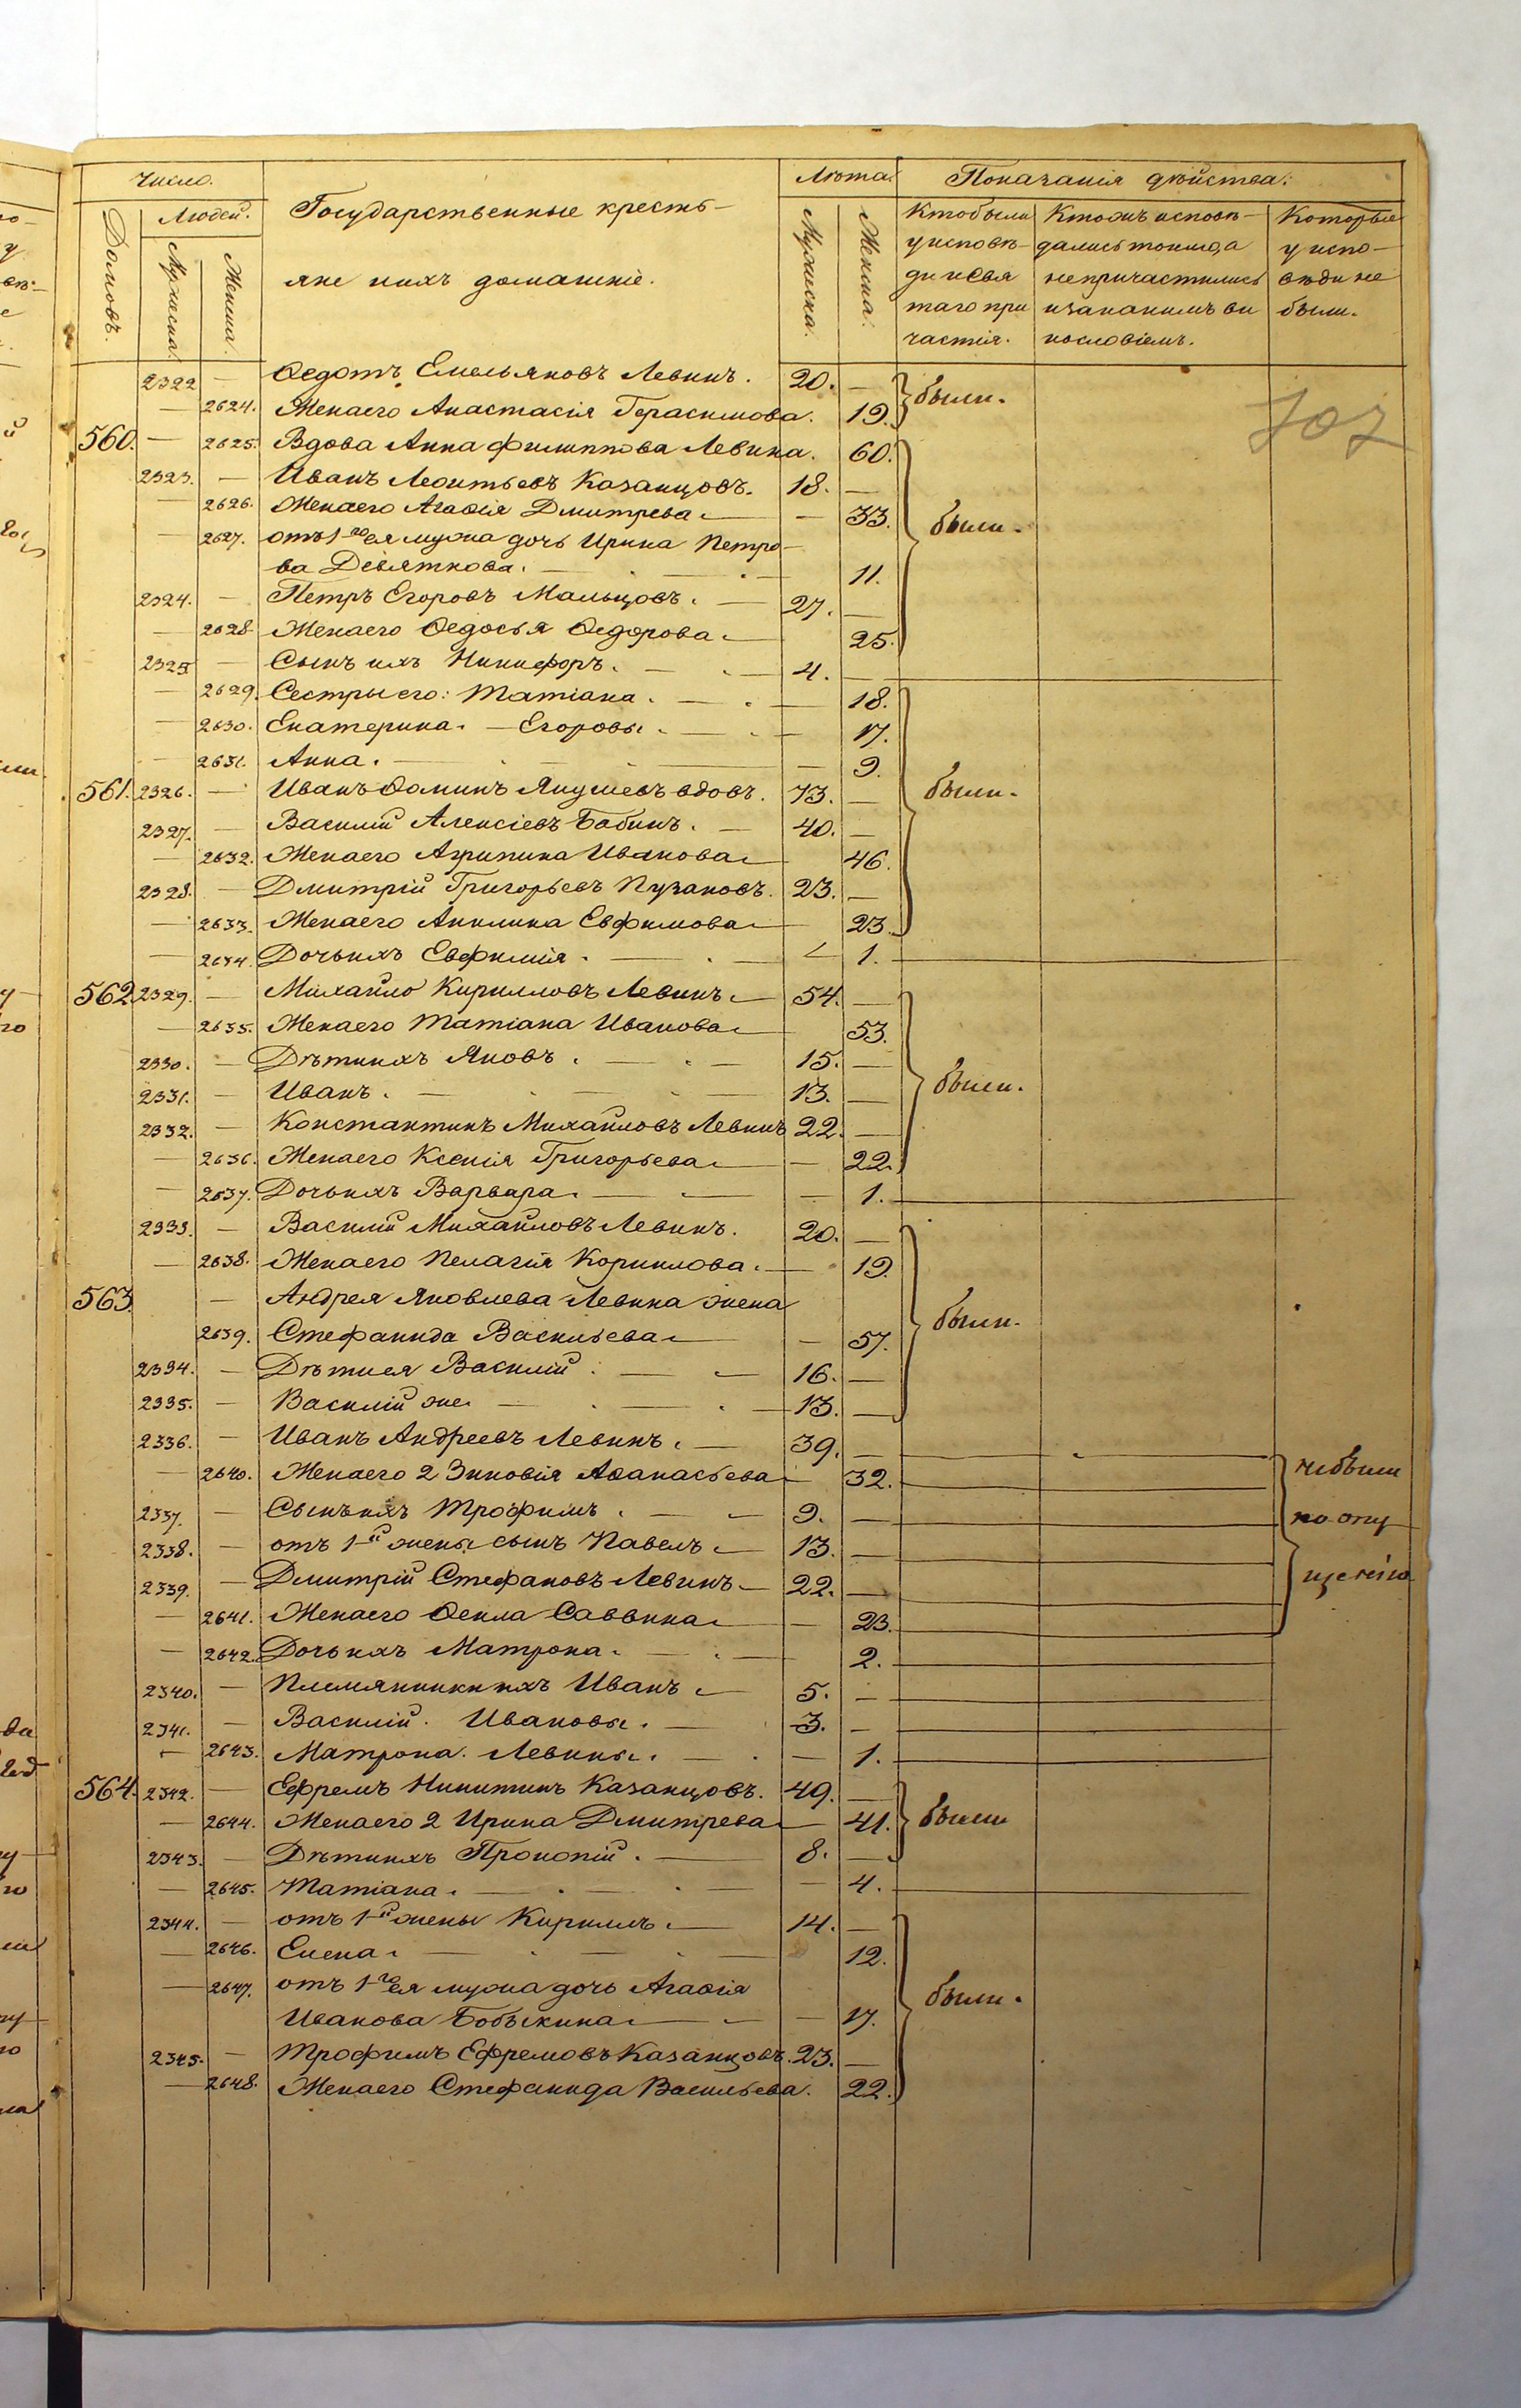 Число. Лѣта. Показанія дѣйства:
Домовъ. Людей. Мужеска. Женска.
Государственные кресть-
яне и ихъ домашніе.
Мужеска. Женска.
Кто были у исповѣ- ди и свя таго при частія.
Кто жъ исповѣ- дались токмо, а не причастились и за какимъ ви нословіемъ.
Которые у испо- вѣди не были.
707
2322 — Ѳедотъ Емельяновъ Левинъ. 20. —
были.
— 2624. Жена его Анастасія Герасимова. 19.
560. — 2625. Вдова Анна Филиппова Левина. 60.
2323. — Иванъ Леонтьевъ Казанцовъ. 18. —
— 2626. Жена его Агаѳія Дмитрева — 33.
были.
— 2627. отъ 1-го ея мужа дочь Ирина Петро-
ва Девяткова. — 11.
2324. — Петръ Егоровъ Мальцовъ. — 27. —
— 2628 Жена его Ѳедосья Ѳедорова — 25.
2325 — Сынъ ихъ Никифоръ. — 4. —
— 2629. Сестры его: Татіана. — 18.
— 2630. Екатерина. — Егоровы. — 17.
— 2631. Анна. — 9.
561. 2326. — Иванъ Ѳоминъ Якушевъ вдовъ. 73. —
были.
2327. — Василій Алексіевъ Бабинъ. — 40. —
— 2632. Жена его Агрипина Иванова — 46.
2328. — Дмитрій Григорьевъ Пузановъ. 23. —
— 2633. Жена его Акилина Евфимова — 23.
— 2634. Дочь ихъ Евфимія. — 1.
562. 2329. — Михайло Кирилловъ Левинъ — 54. —
— 2635. Жена его Татіана Иванова — 53.
2330. — Дѣти ихъ Яковъ. — 15. —
2331. — Иванъ. — 13. —
были.
2332. — Константинъ Михайловъ Левинъ 22. —
— 2636. Жена его Ксенія Григорьева — 22.
— 2637. Дочь ихъ Варвара. — 1.
2333. — Василій Михайловъ Левинъ. 20. —
— 2638. Жена его Пелагія Корнилова. — 19.
563. — Андрея Яковлева Левина жена
были.
2639. Стефанида Васильева — 57.
2334. — Дѣти ея Василій. — 16. —
2335. — Василій же. — 13. —
2336. — Иванъ Андреевъ Левинъ. — 39. —
— 2640. Жена его 2 Зиновія Аѳанасьева — 32.
не были
2337. — Сынъ ихъ Трофимъ. — 9. —
по опу
2338. — отъ 1-й жены сынъ Павелъ — 13. —
2339. — Дмитрій Стефановъ Левинъ — 22. —
щенію
— 2641. Жена его Ѳекла Саввина — 23.
— 2642. Дочь ихъ Матрона. — 2.
2340. — Племянники ихъ Иванъ — 5. —
2341. — Василій. Ивановы. — 3. —
— 2643. Матрона. Левины. — 1.
564. 2342. — Ефремъ Никитинъ Казанцовъ. 49. —
— 2644. Жена его 2 Ирина Дмитрева — 41.
были
2343. — Дѣти ихъ Прокопій. — 8. —
— 2645. Татіана. — 4.
2344. — отъ 1-й жены Кириллъ. — 14. —
— 2646. Елена. — 12.
— 2647. отъ 1-го ея мужа дочь Агаѳія
были.
Иванова Бобыкина — 17.
2345. — Трофимъ Ефремовъ Казанцовъ. 23. —
— 2648. Жена его Стефанида Васильева. 22.